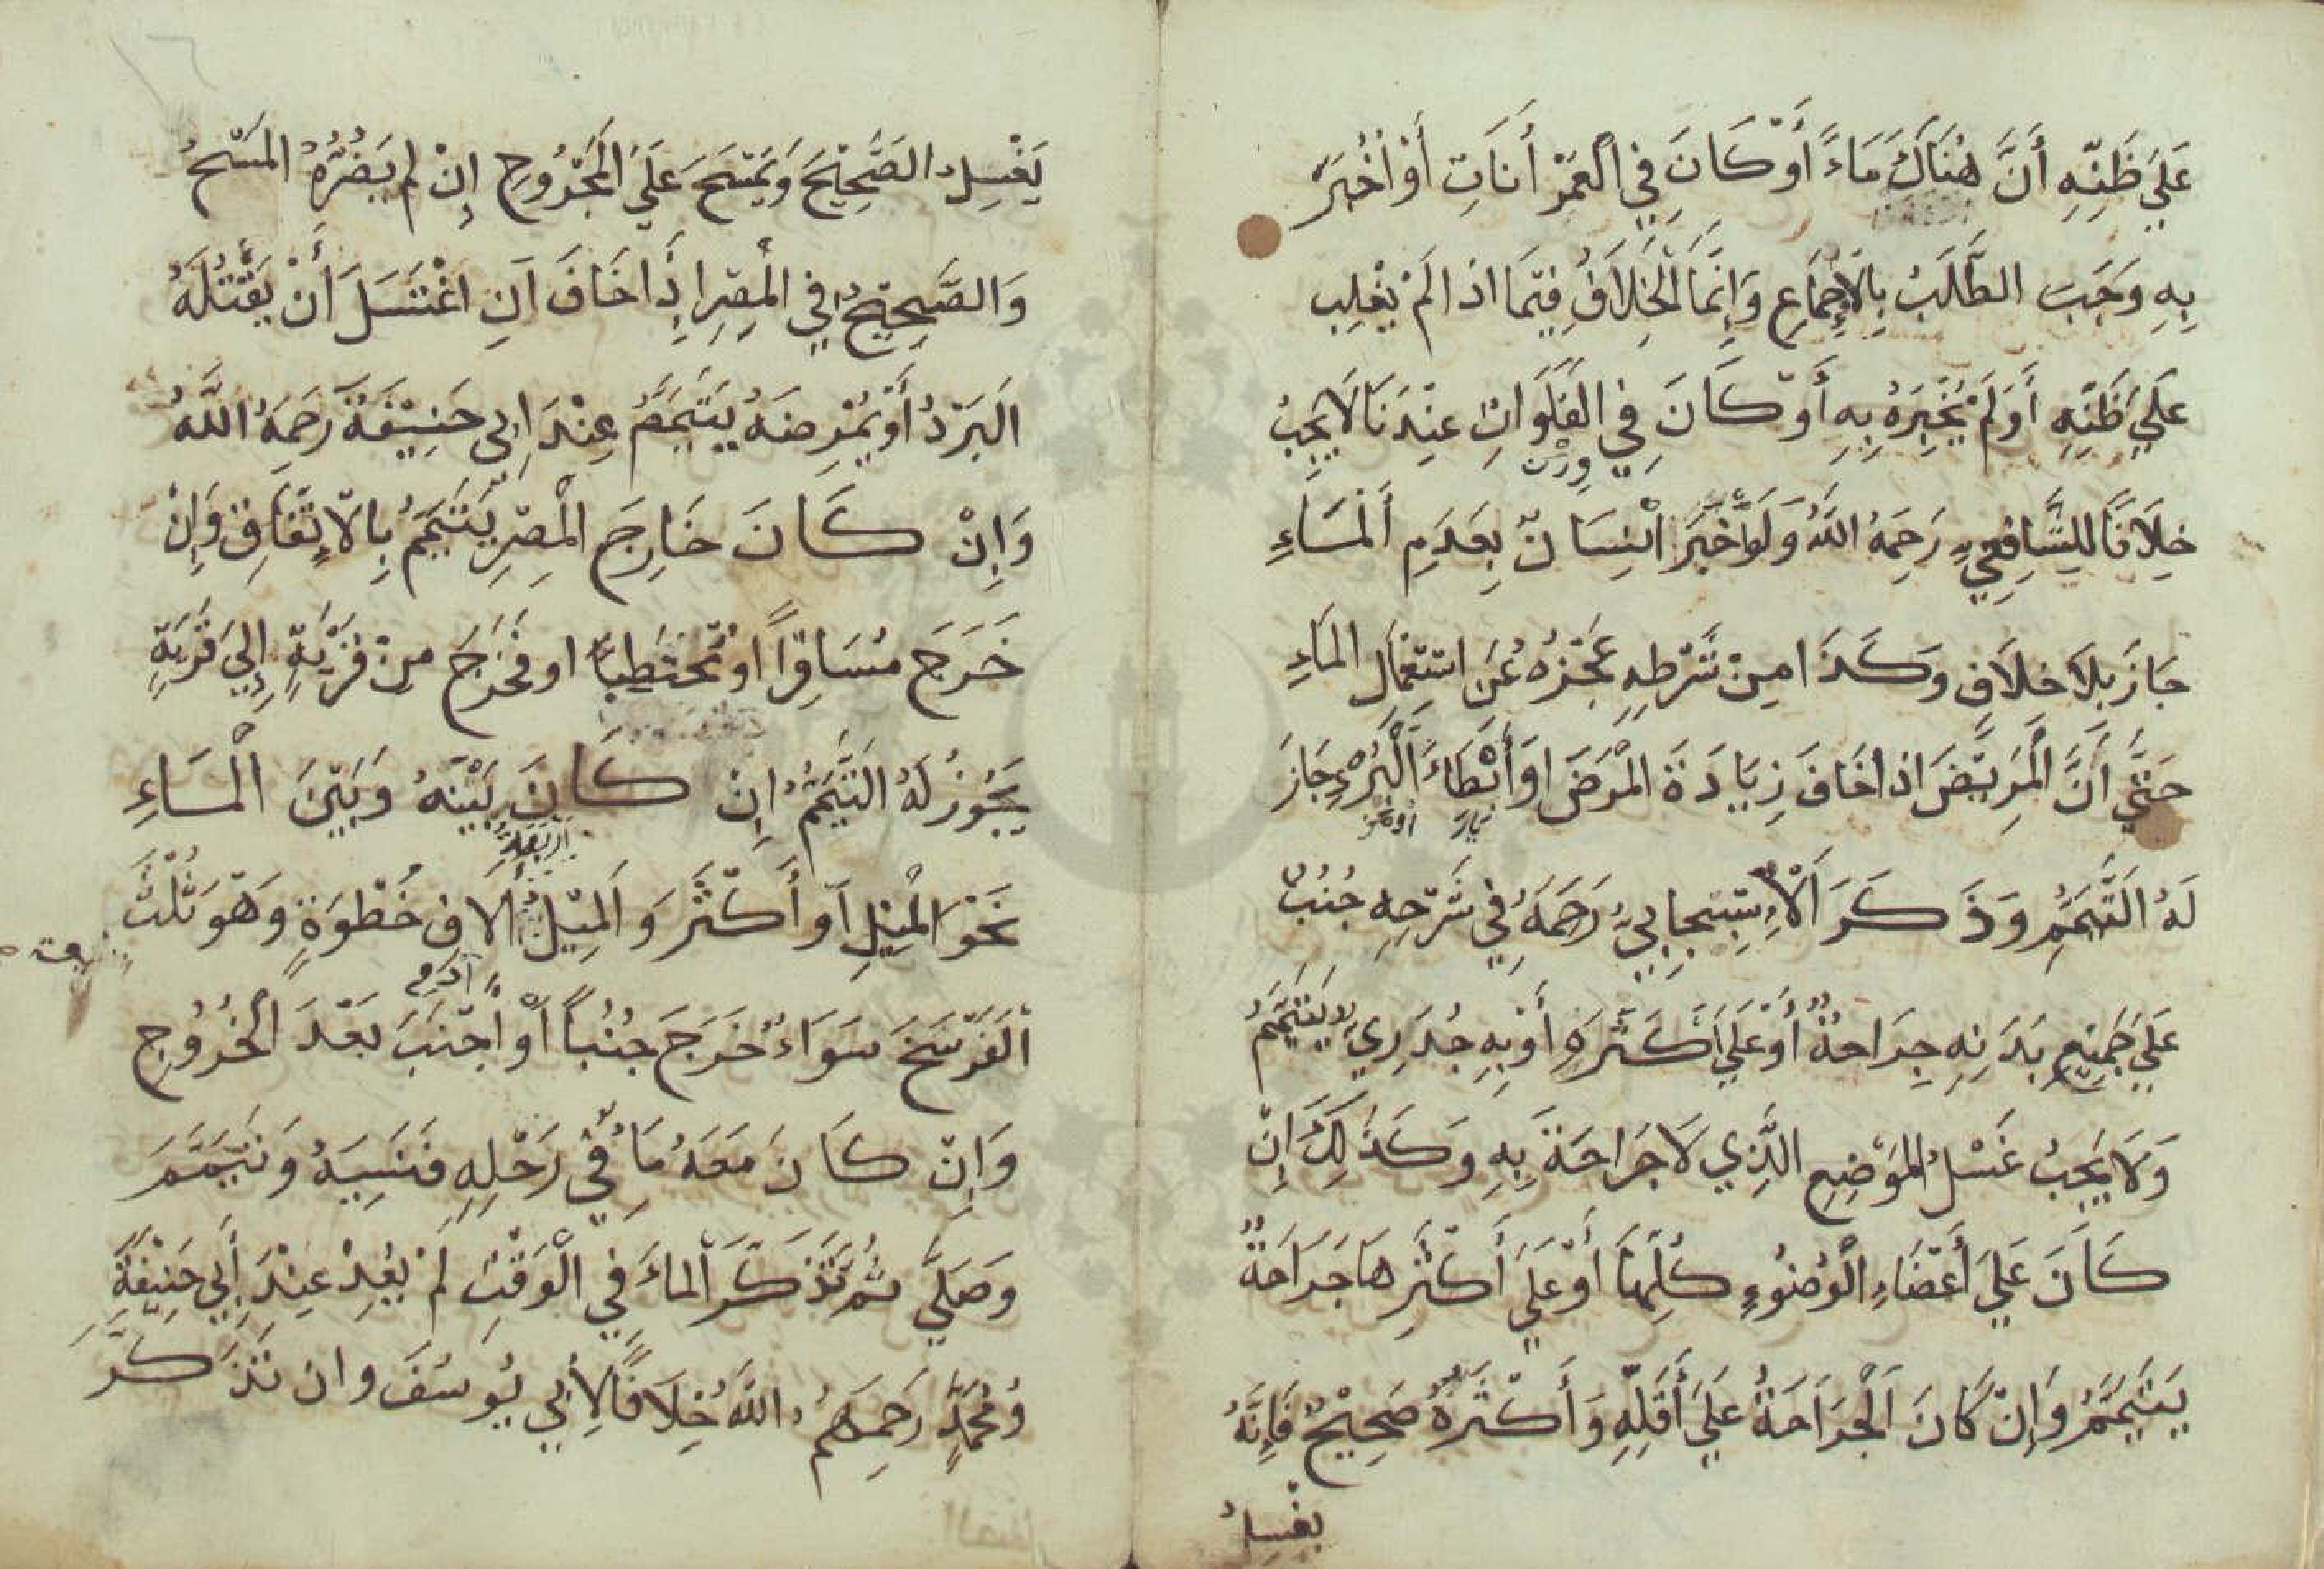 عَلَيَ ظَنِّهِ أَنَّ هُنَاكَ مَاءً أَوْ كَانَ فِي الْعَمْرَانَاتِ أَوْ أُخْبِرَ
بِهِ وَجَبَ الطَّلَبُ بِالْإِجْمَاعِ وَإِنَّمَا الْخِلَافُ فِيمَا اذَا لَمْ يَغْلِبْ
عَلَيَ ظَنِّهِ أَوْ لَمْ يُخْبِرَهُ بِهِ أَوْ كَانَ فِي الْفَلَوَاتِ عِنْدَنَا لَا يَجِبُ
خِلَافًا لِلشَّافِعِيِّ رَحِمَهُ اللَّهُ وَلَوْ أَخْبَرَ انْسَانٌ بِعَدَمِ الْمَاءِ
جَازَ بِلَا خِلَافٍ وَكَذَا مِنْ شَرْطِهِ عَجْزُهُ عَنِ اسْتِعْمَالِ الْمَاءِ
حَتَّيَ أَنَّ الْمَرِيْضَ اذَا خَافَ زِيَادَةَ الْمَرَضِ اوْ أَبْطَاءَ الْبُرْءِ جَازَ
لَهُ التَّيَمُّمُ وَذَكَرَ الْإِسْبِيْجَابِيُّ رَحِمَهُ فِي شَرْحِهِ جُنُبٌ
عَلَيَ جَمِيْعِ بَدَنِهِ جِرَاحَةٌ أَوْ عَلَيَ أَكْثَرِهِ أَوْ بِهِ جُدَرِيٌ لا يَتَيَمَّمُ
وَلَا يَجِبُ غَسْلُ الْمَوْضِعِ الَّذِي لَا جَرَاحَةَ بِهِ وَكَذَلِكَ إِنْ
كَانَ عَلَيَ أَعْضَاءِ الْوُضُوءِ كُلِّهَا أَوْ عَلَيَ أَكْثَرِهَا جَرَاحَةٌ
يَتَيَمَّمُ وَإِنْ كَانَ الْجِرَاحَةُ عَلَيَ أَقَلِّهِ وَأَكْثَرُهُ صَحِيْحٌ فَإِنَّهُ
يَغْسِلُ
يَغْسِلُ الصَّحِيْحَ وَيَمْسَحُ عَلَيَ الْمَجْرُوحِ إِنْ لَم يَضُرَّهُ الْمَسْحُ
وَالصَّحِيْحُ فِي الْمِصْرِ إِذَا خَافَ انِ اغْتَسَلَ أَنْ يَقْتُلَهُ
الْبَرْدُ أَوْ يُمْرِضَهُ يَتَيَمَّمُ عِنْدَ ابِي حَنِيْفَةَ رَحِمَهُ اللَّهُ
وَإِنْ كَانَ خَارِجَ الْمِصْرِ يَتَيَمَّمُ بِالْاتِّفَاقِ وَإِنْ
خَرَجَ مُسَافِرًا اوْ مُحْتَطِبًا او فَخَرَجَ مِنْ قَرْيَةٍ إِلَيَ قَرْيَةٍ
يَجُوزُ لَهُ التَّيَمُّمُ إِنْ كَانَ بَيْنَهُ وَبَيْنَ الْمَاءِ
نَحْوَ الْمِيْلِ أَوْ أَكْثَرَ وَالْمِيْلُ أَرْبَعَةُ آلَافِ خُطْوَةٍ وَهُوَ ثُلُثُ
الْفَرْسَخَ سَوَاءٌ خَرَجَ جُنُبًا أَوْ اجْنَبَ بَعْدَ الْخُرُوجِ
وَإِنْ كَانَ مَعَهُ مَاءٌ فِي رَحْلِهِ فَنَسِيَهُ وَتَيَمَّمَ
وَصَلَّيَ ثُمَّ تَذَكَّرَ الْمَاءَ فِي الْوَقْتِ لَمْ يُعِدْ عِنْدَ أَبِي حَنِيْفَةَ
وَمُحَمَّدٍ رَحِمَهُمُ اللَّهُ خِلَافًا لِأَبِي يُوسُفَ وان تَذَكَّرَ